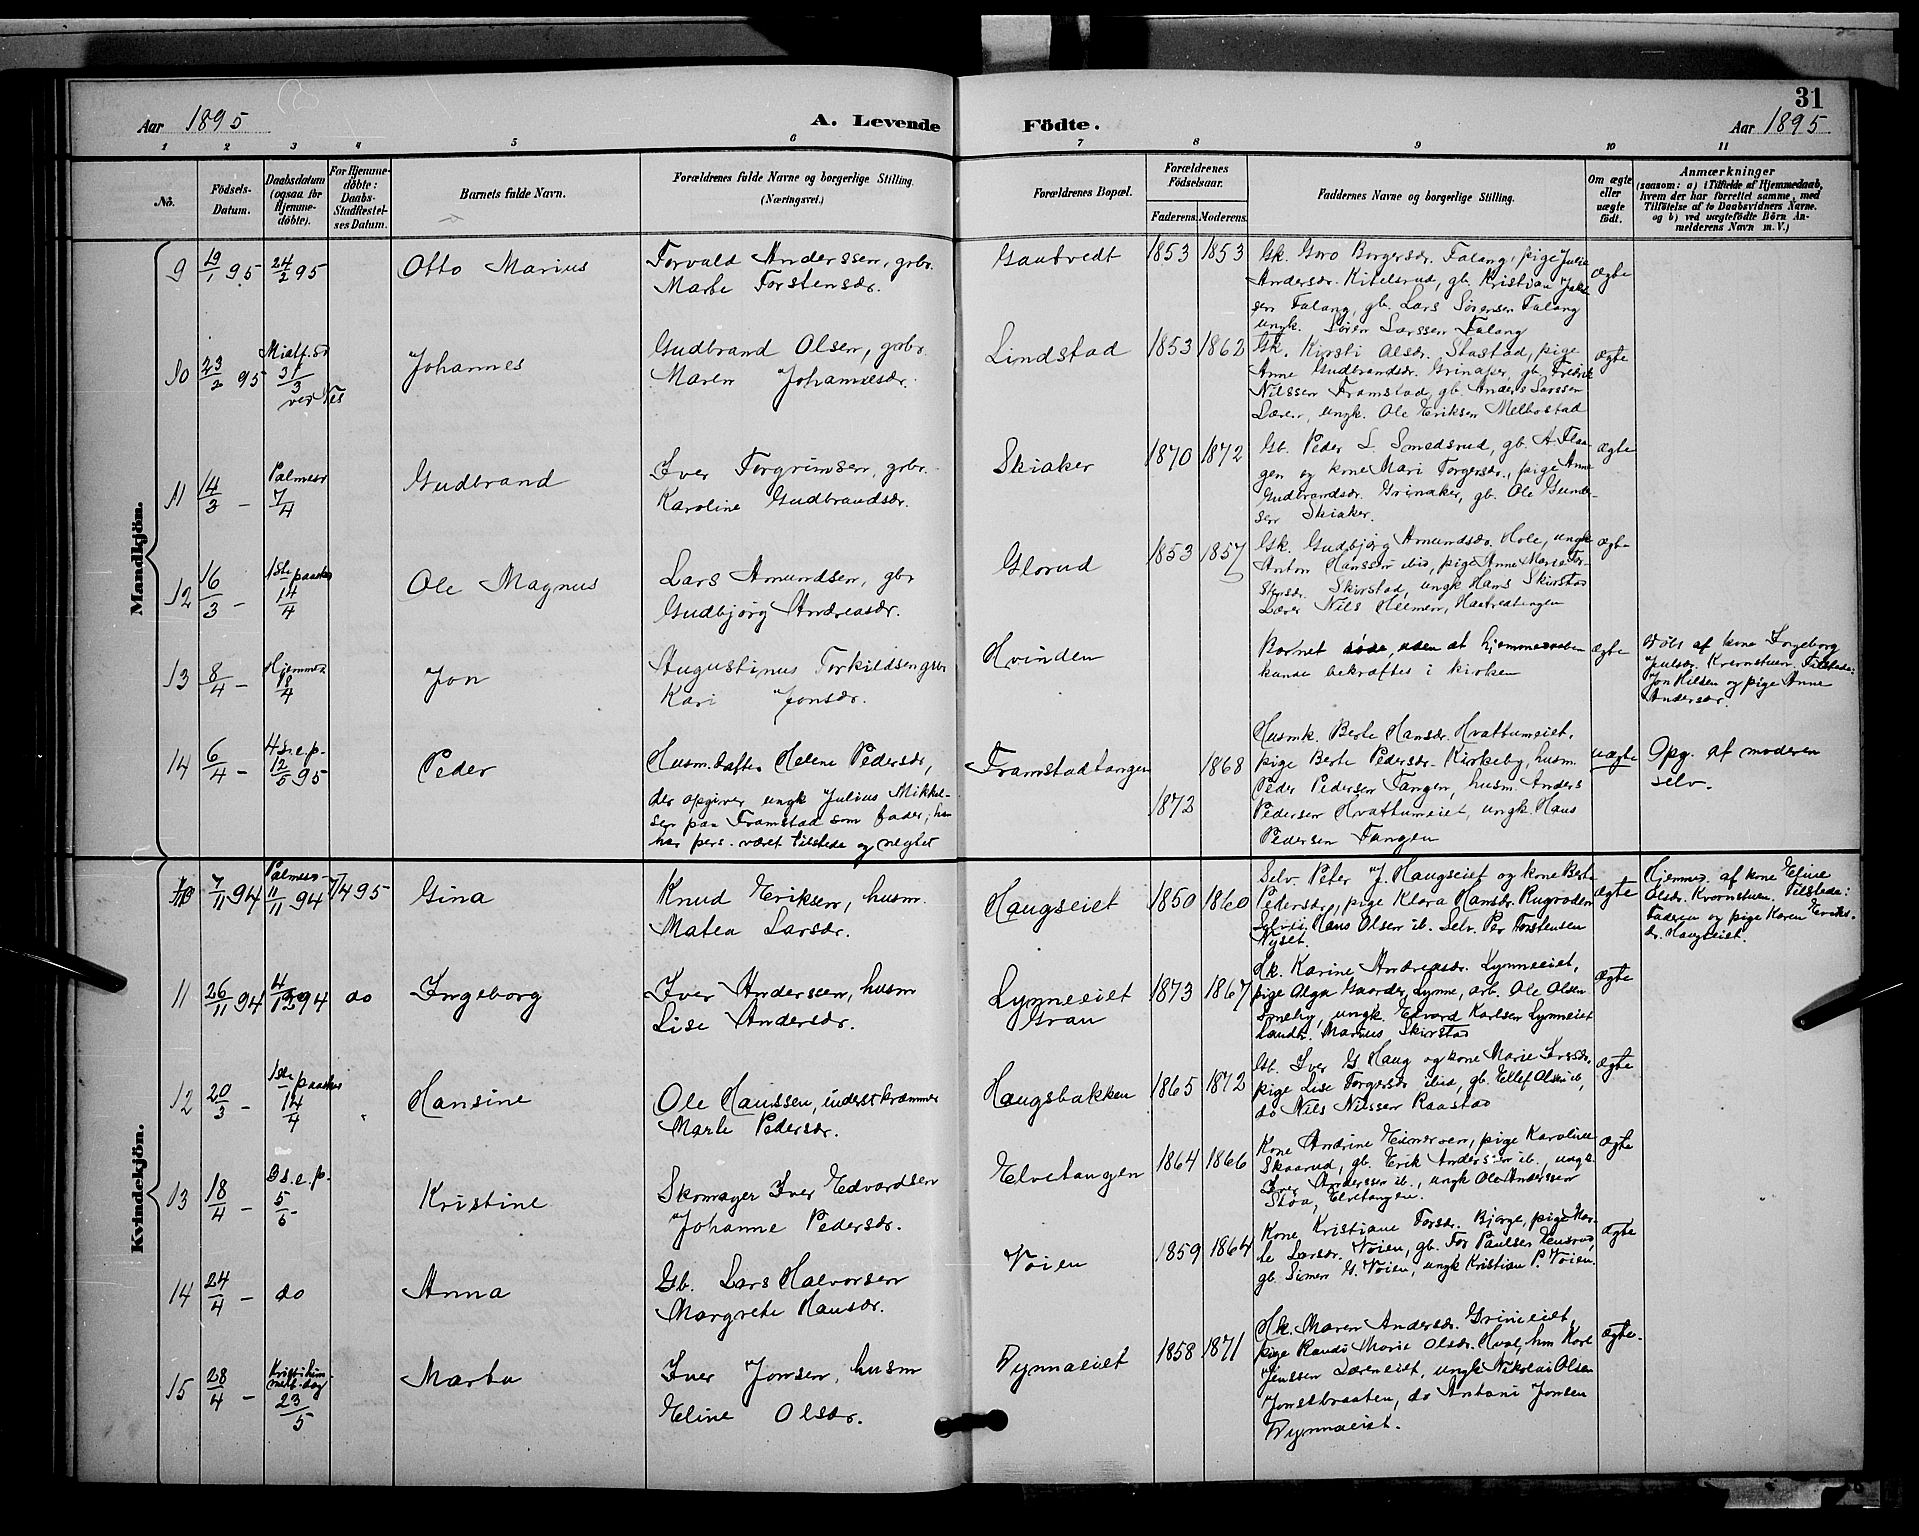 31
Aar 1895
A. Levende
Födte.
Aar 1895
1 2 3 4 5 6 7 8 9 10 11
No.
Födsels-
Datum.
Daabsdatum
(ogsaa for
Hjemme-
döbte).
For Hjemme-
döbte:
Daabs-
Stadfæstel-
ses Datum.
Barnets fulde Navn.
Forældrenes fulde Navne og borgerlige Stilling.
(Næringsvei.)
Forældrenes Bopæl.
Forældrenes
Födselsaar.
Faderens. Moderens.
Faddernes Navne og borgerlige Stilling.
Om ægte
eller
uægte
födt.
Anmærkninger
(saasom: a) i Tilfælde af Hjemmedaab,
hvem der har forrettet samme, med
Tilföielse af to Daabsvidners Navne.
og b) ved uægtefödte Börn An-
melderens Navn m. V.)
Mandkjön.
9 19/1 95 24/2 95
Otto Marius
Torvald Anderssen, grbr.
Marte Torstensdr.
Gautvedt
1853 1853
Gk. Goro Borgersdr. Falang, pige Julie
Andersdr. Kitelsrud, gb. Kristian
sen Falang, gb. Lars Sörensen Falang
ungk. Sören Larssen Falang
ægte
10 23/2 95
31/3
ved Næs
Johannes
Gudbrand Olsen, grbr.
Maren Johannesdr.
Lindstad
1853 1862
Gk. Kirsti Olsdr. Stastad, pige
Anne Gudbrandsdr. Grinaker, gb. Fredrik
Nilssen Framstad, gb. Anders Larssen
ungk. Ole Eriksen Melbostad
ægte
11 14/3 –
Palmesö
7/4
Gudbrand
Iver Torgrimsen, grbr.
Karoline Gudbrandsdr.
Skiaker
1870 1872
Gb. Peder L. Smedsrud, gb. A. Flaa-
gen og kone Mari Torgersdr., pige Anne
Gudbrandsdr. Grinaker, gb. Ole Gunder-
sen Skiaker.
ægte
12 16/3 –
1ste paaske
14/4
Ole Magnus
Lars Amundsen, gbr
Gudbjörg Andreasdr.
Glorud
1853 1857
Gk. Gudbjörg Amundsdr. Hole, ungk
Anton Hanssen ibid, pige Anne Marie Tor-
stensdr. Skirstad, ungk Hans Skirstad
Lærer Nils Helmen,
ægte
13 8/4 –
Hjemmed
18/4
Jon
Augustinus Torkildsen grbr
Kari Jonsdr.
Hvinden
Barnet döde, uden at hjemmedaaben
kunde bekræftes i kirken
ægte
Döbt af kone Ingeborg
Julsdr. Kvernstuen. Tilstede:
Jon Hilden og pige Anne
Andersdr.
14 6/4 –
4 s. e. p.
12/5 95
Peder
Husm. datter Helene Pedersdr,
der opgiver ungk Julius Mikkel-
sen paa Framstad som fader; han
har pers. været tilstede og negtet
Framstadtangen
1868
1872
Husmk. Berte Hansdr. Hvattumeiet,
pige Berte Pedersdr. Kirkeby, husm.
Peder Pedersen Tangen, husm. Anders
Pedersen Hvattumeiet, ungk Hans
Pedersen Tangen
uægte
Opg. af moderen
selv.
Kvindekjön.
10 7/11 94
Palmesö-
11/11 94
7/4 95
Gina
Knud Eriksen, husm.
Matea Larsdr.
Haugseiet
1850 1860
Selv. Peter J. Haugseiet og kone Berte
Pedersdr., pige Klara Hansdr. Rugroden
Selvei. Hans Olsen ib. Selv. Per Torstensen
Nyset.
ægte
Hjemmed. af kone Eline
Olsdr. Kvernstuen. Tilstede:
Faderen og pige Karen Eriks-
dr. Haugseiet.
11 26/11 94
4/12 94
do
Ingeborg
Iver Anderssen, husm
Lise Andersdr.
Lynneeiet
Gran
1873 1867
Hk. Karine Andreasdr. Lynneeiet,
pige Olga Gaarder Lynne, arb. Ole Olsen
Smeby, ungk. Edvard Karlsen Lynneeiet
Landh. Marius Skirstad
ægte
12 20/3 –
1ste paaske
14/4
"
Hansine
Ole Hanssen, inderst kræmmer
Marte Pedersdr.
Haugsbakken
1865 1872
Gb. Iver G. Haug og kone Marie Larsdr,
pige Lise Torgersdr ibid, gb. Ellef Olsen ib,
do Nils Nilssen Raastad
ægte
13 18/4 –
3 s. e. p.
5/5
Kristine
Skomager Iver Edvardsen
Johanne Pedersdr.
Elvetangen
1864 1866
Kone Andrine Einersen, pige Karoline
Skaarud, gb. Erik Anderssen ib., ungk.
Iver Anderssen ib., ungk Ole Anderssen
Stoa, Elvetangen.
ægte
14 24/4 – do
Anna
Gb. Lars Halvorsen
Margrete Hansdr.
Vöien
1859 1864
Kone Kristiane Torsdr. Bjerge, pige Mar-
te Larsdr. Vöien, gb. Tor Paulsen Hensrud,
gb. Simen G. Vöien, ungk Kristian P. Vöien.
ægte
15 28/4 –
Kristi him-
melf. dag
23/5
Marta
Iver Jonsen, husm
Eline Olsdr.
Dynnaeiet
1858 1871
Hk. Maren Andersdr. Grinieiet,
pige Randi Marie Olsdr. Hval, hm Karl
Jenssen Lærneiet, ungk Nikolai Olsen
Jonstbraaten, do Antoni Jonsen
Dynnaeiet.
ægte.